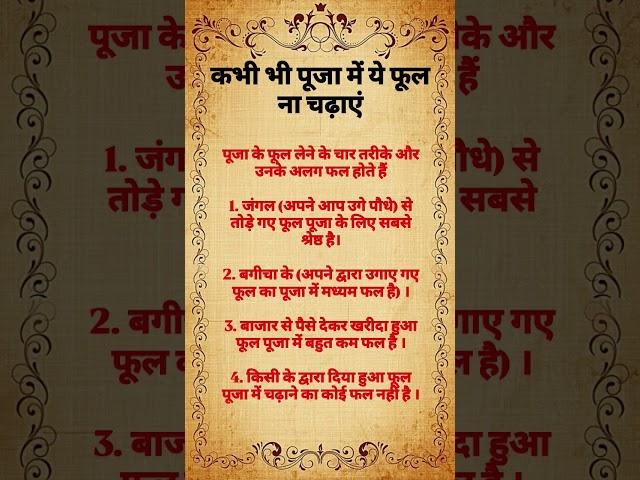 कभी भी पूजा में ये फूल
ना चढ़ाएं
पूजा के फूल लेने के चार तरीके और
उनके अलग फल होते हैं
1. जंगल (अपने आप उगे पौधे) से
तोड़े गए फूल पूजा के लिए सबसे
श्रेष्ठ है।
2. बगीचा के (अपने द्वारा उगाए गए
फूल का पूजा में मध्यम फल है) ।
3. बाजार से पैसे देकर खरीदा हुआ
फूल पूजा में बहुत कम फल है ।
4. किसी के द्वारा दिया हुआ फूल
पूजा में चढ़ाने का कोई फल नहीं है ।